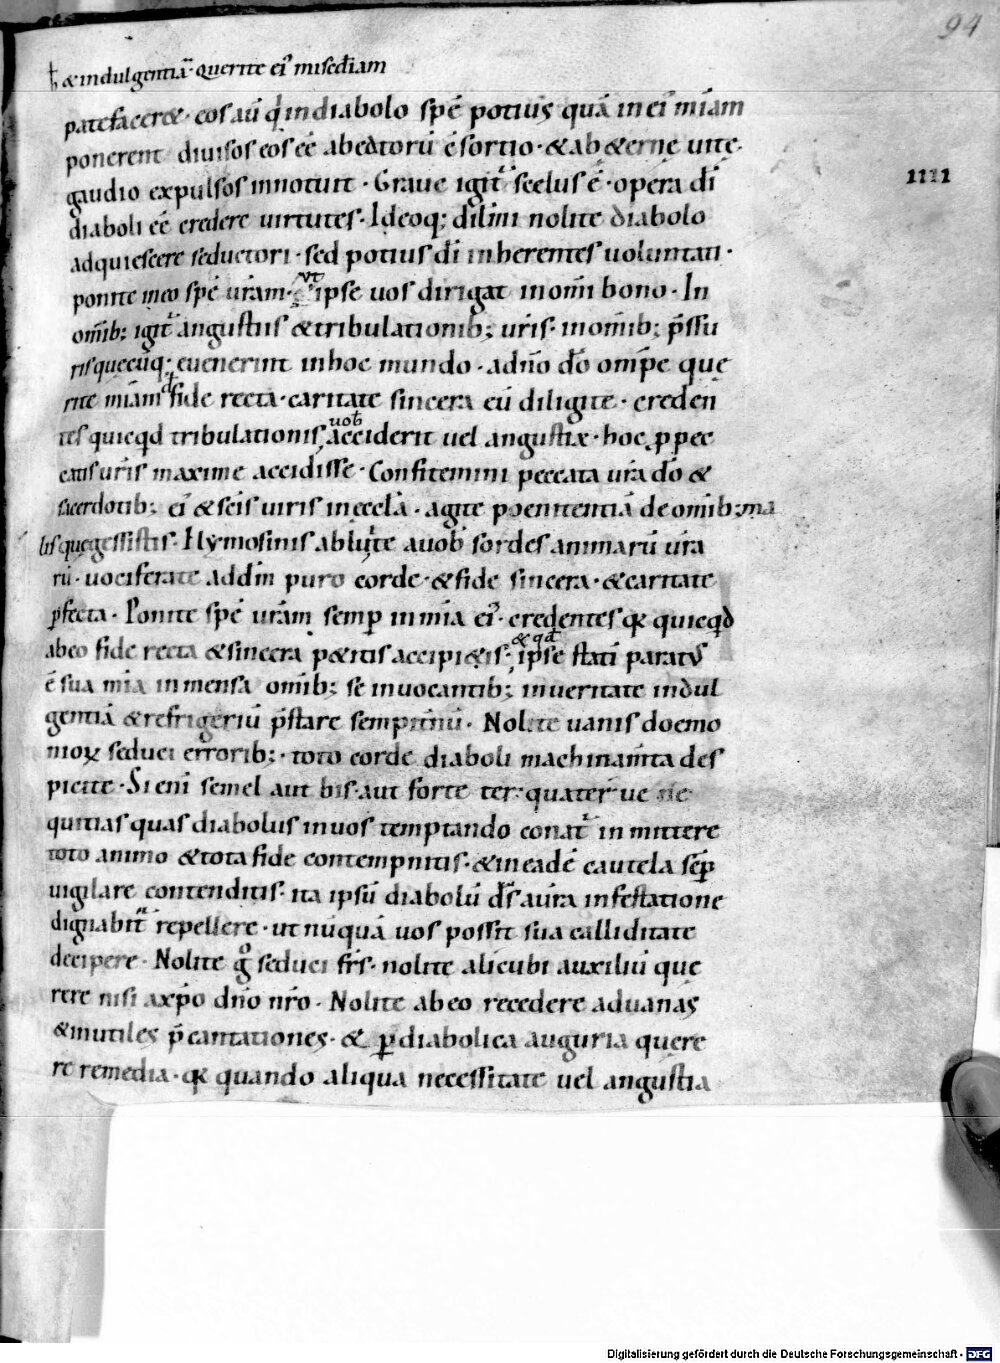 94
ħ & indulgentiā· querite ei᷒ misc̄diam
patefacere&· eos aū q̇ in diabolo spē potius quā in ei᷒ mīam
ponerent diuisos eos eē ab eōtorū ēsortio· & ab &erne uite·
gaudio expulsos innotuit· Graue igit᷒ scelus ē· opera dī
diaboli eē credere uirtutes· Ideoq; dilm̄i nolite diabolo
adquiescere seductori· sed potius dī inherentes uoluntati·
ponite in eo spē urām· ut ipse uos dirigat in om̄i bono· In
om̄ib; igit᷒ angustiis & tribulationib; uris· in om̄ib; p̄ssu
ris quęcūq; euenerint in hoc mundo· ad dn̄o dō om̄pe quę
rite mīam fide recta· caritate sincera eū diligite· creden
tes quicqd tribulationis uob̄ acciderit uel angustiæ· hoc p pec
catis uris maxime accidisse· Confitemini peccata ur̄a dō &
sacerdotib; ei᷒ & sc̄is uiris in eccl̄a· agite poenitentiā de om̄ib; ma
lis quę gessistis· Hỳmosinis abluite a uob̄ sordes animarū ur̄a
rū· uociferate ad dīn puro corde· & fide sincera· & caritate
p̄fecta· Ponite spē urām semp in mīa ei᷒· credentes qꝫ quicqd
ab eo fide recta & sincera p&itis accipi&is· & qd̄ ipse statī paratus
ē sua mīa inmensa om̄ib; se inuocantib; in ueritate indul
gentiā & refrigeriū p̄stare sempit̄nū· Nolite uanis doemo
nioꝝ seduci errorib;· toto corde diaboli machinam̄ta des
picite· Si eni semel aut bis· aut forte ter· quater ue ne
quitias quas diabolus in uos temptando conat᷒ in mittere
toto animo & tota fide contempnitis· & in eadē cautela sēp
uigilare contenditis· ita ipsū diabolū dn̄s a ur̄a infestatione
dignabit᷒ repellere· ut nūquā uos possit sua calliditate
decipere· Nolite g̊ seduci frs̄· nolite alicubi auxiliū que
rere nisi a xp̄o dn̄o nr̄o· Nolite ab eo recedere ad uanas
& inutiles p̄cantationes· & p diabolica auguria quere
re remedia· qꝫ quando aliqua necessitate uel angustia
IIII
Digitalisierung gefördert durch die Deutsche Forschungsgemeinschaft - DFG